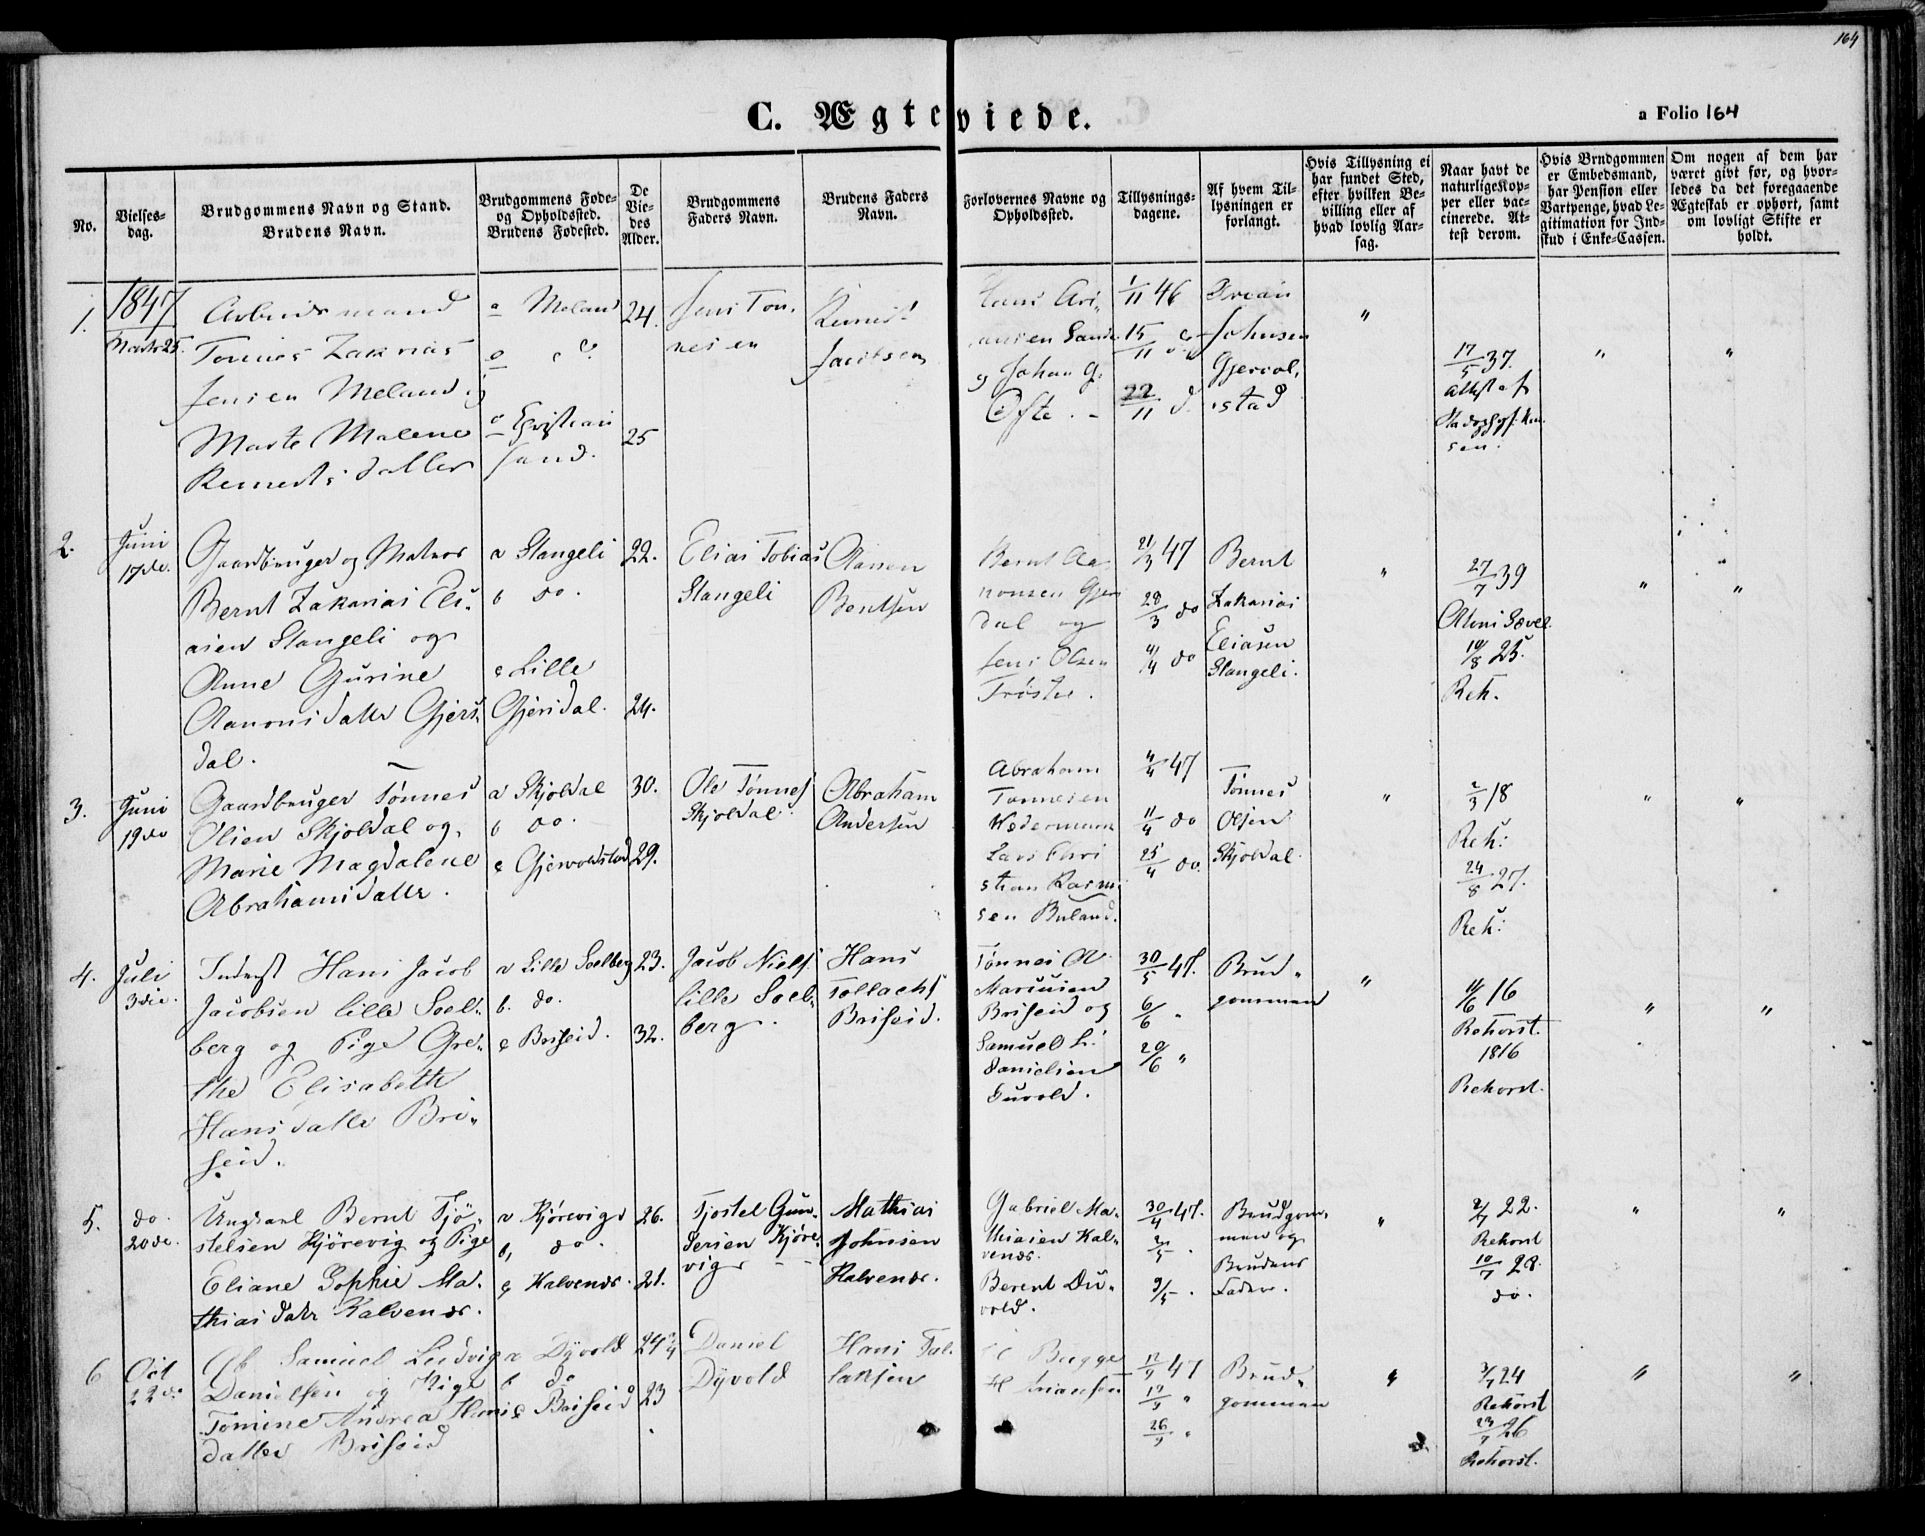 164
C. Ægteviede.
a Folio 164
No.
Vielses-
dag.
Brudgommens Navn og Stand.
Brudens Navn.
Brudgommens Føde-
og Opholdssted.
Brudens Fødested.
De
Vie-
des
Alder.
Brudgommens
Faders Navn.
Brudens Faders
Navn.
Forlovernes Navne og
Opholdssted.
Tillysnings-
dagene.
Af hvem Til-
lysningen er
forlangt.
Hvis Tillysning ei
har fundet Sted,
efter hvilken Be-
villing eller af
hvad lovlig Aar-
sag.
Naar havt de
naturlige Kop-
per eller vac-
cinerede. At-
test derom.
Hvis Brudgommen
er Embedsmand,
har Pension eller
Vartpenge, hvad Le-
gitimation for Ind-
skud i Enke-Cassen.
Om nogen af dem har
været givt før, og hvor-
ledes da det foregaaende
Ægteskab er ophørt, samt
om lovligt Skifte er
holdt.
1.
1847
Marts 25.
Arbeidsmand
Tønnes Zakrias
Jensen Meland og
Marte Malene
Reinertsdatter
a Meland
Christian
sand.
24.
25
Jens Tøn-
nesen
Reinert
Jacobsen
Hans Ari-
ansen Sande
og Johan G.
Øfte. -
1/11 46
15/11 do
22/11 d.
Johnsen
Gjervol-
stad
"
17/5 37.
Attest af
"
"
2.
Juni
17de.
Gaardbruger og Matros
Bernt Zakarias Eli-
asen Stangeli og
Anne Gurine
Aanonsdatter Gjers-
dal.
a Stangeli
b do.
c Lille
Gjersdal.
22.
24.
Elias Tobias
Stangeli
Aanon
Bentsen
Bernt Aa-
nonsen Gjers
dal og
Jens Olsen
Trøste.
21/3 47
28/3 do
4/4 do
Bernt
Zakarias
Eliasen
Stangeli.
"
27/7 39
19/8 25.
Reh.
"
"
3.
Juni
19de
Gaardbruger Tønnes
Olsen Skjoldal og
Marie Magdalene
Abrahamsdatter.
a Skjoldal
b do.
c Gjervoldstad
30.
29.
Ole Tønnes
Skjoldal.
Abraham
Andersen
Abraham
Tønnesen
Lars Chri
stian Rasmu
sen Buland.
4/4 47
11/4 do
25/4 do.
Tønnes
Olsen
Skjoldal.
"
2/3 18
Reh:
24/8 27.
Reh:
"
"
4.
Juli
3die.
Inderst Hans Jacob
Jacobsen lille Soel-
berg og Pige Gre-
the Elisabeth
Hansdatter Bri-
seid.
a Lille Soelberg
b. do.
c Briseid.
23.
32.
Jacob Niels.
lille Soel-
berg.
Hans
Tollachs
Briseid.
Tønnes A.
Marcusen
Briseid og
Samuel L.
Danielsen
Duvold.
30/5 47.
6/6 "
20/6 "
Brud-
gommen
"
11/6 16
Rehorst.
1816
Rehorst.
"
"
5.
do.
20de.
Ungkarl Bernt Tjö-
stelsen Kjörevig og Pige
Eliane Sophie Ma-
thiasdatr Kalvenæs.
a Kjörevig
b, do.
c Kalvenæs.
26.
21.
Tjostel Gun-
dersen Kjöre-
vig - -
Mathias
Johnsen
Kalvenæs.
Gabriel Ma-
thiasen Kal-
venæs.
Berent Du-
vold.
30/4 47.
2/5 .
9/5 .
Brudgom-
men og
Brudens
Fader.
"
2/7 22.
Rehorst
10/7 28.
do.
"
"
6
Oct
22de
Samuel Ludvig
Danielsen og Pige
Tomine Andrea Hans
datter Briseid
a Dyvold
b do
c Briseid
24
23
Daniel
Dyvold
Hans Tal-
laksen
Bugge
12/9 47
19/9 "
26/9 "
Brud-
gommen
"
3/7 24
Rehorst
23/7 26
Rehorst.
"
"